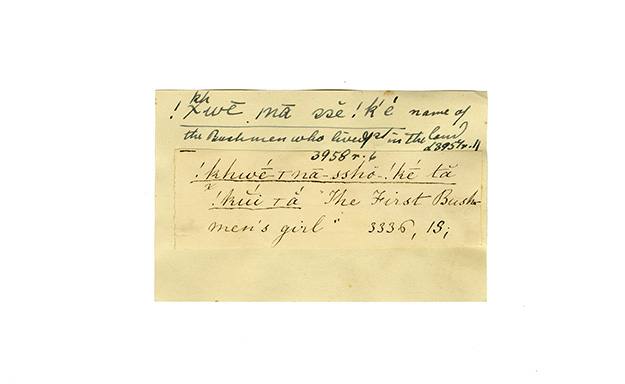 kh
!χwē mā ssĕ !k'é name of
the Bushmen who lived 1st in the land
£3957 r. 4
3958 r. 6
!khwé-ꞇ nā-sshŏ-!ké tă
!kŭi ꞇ ắ "The First Bush-
men's girl" 3336, 13;